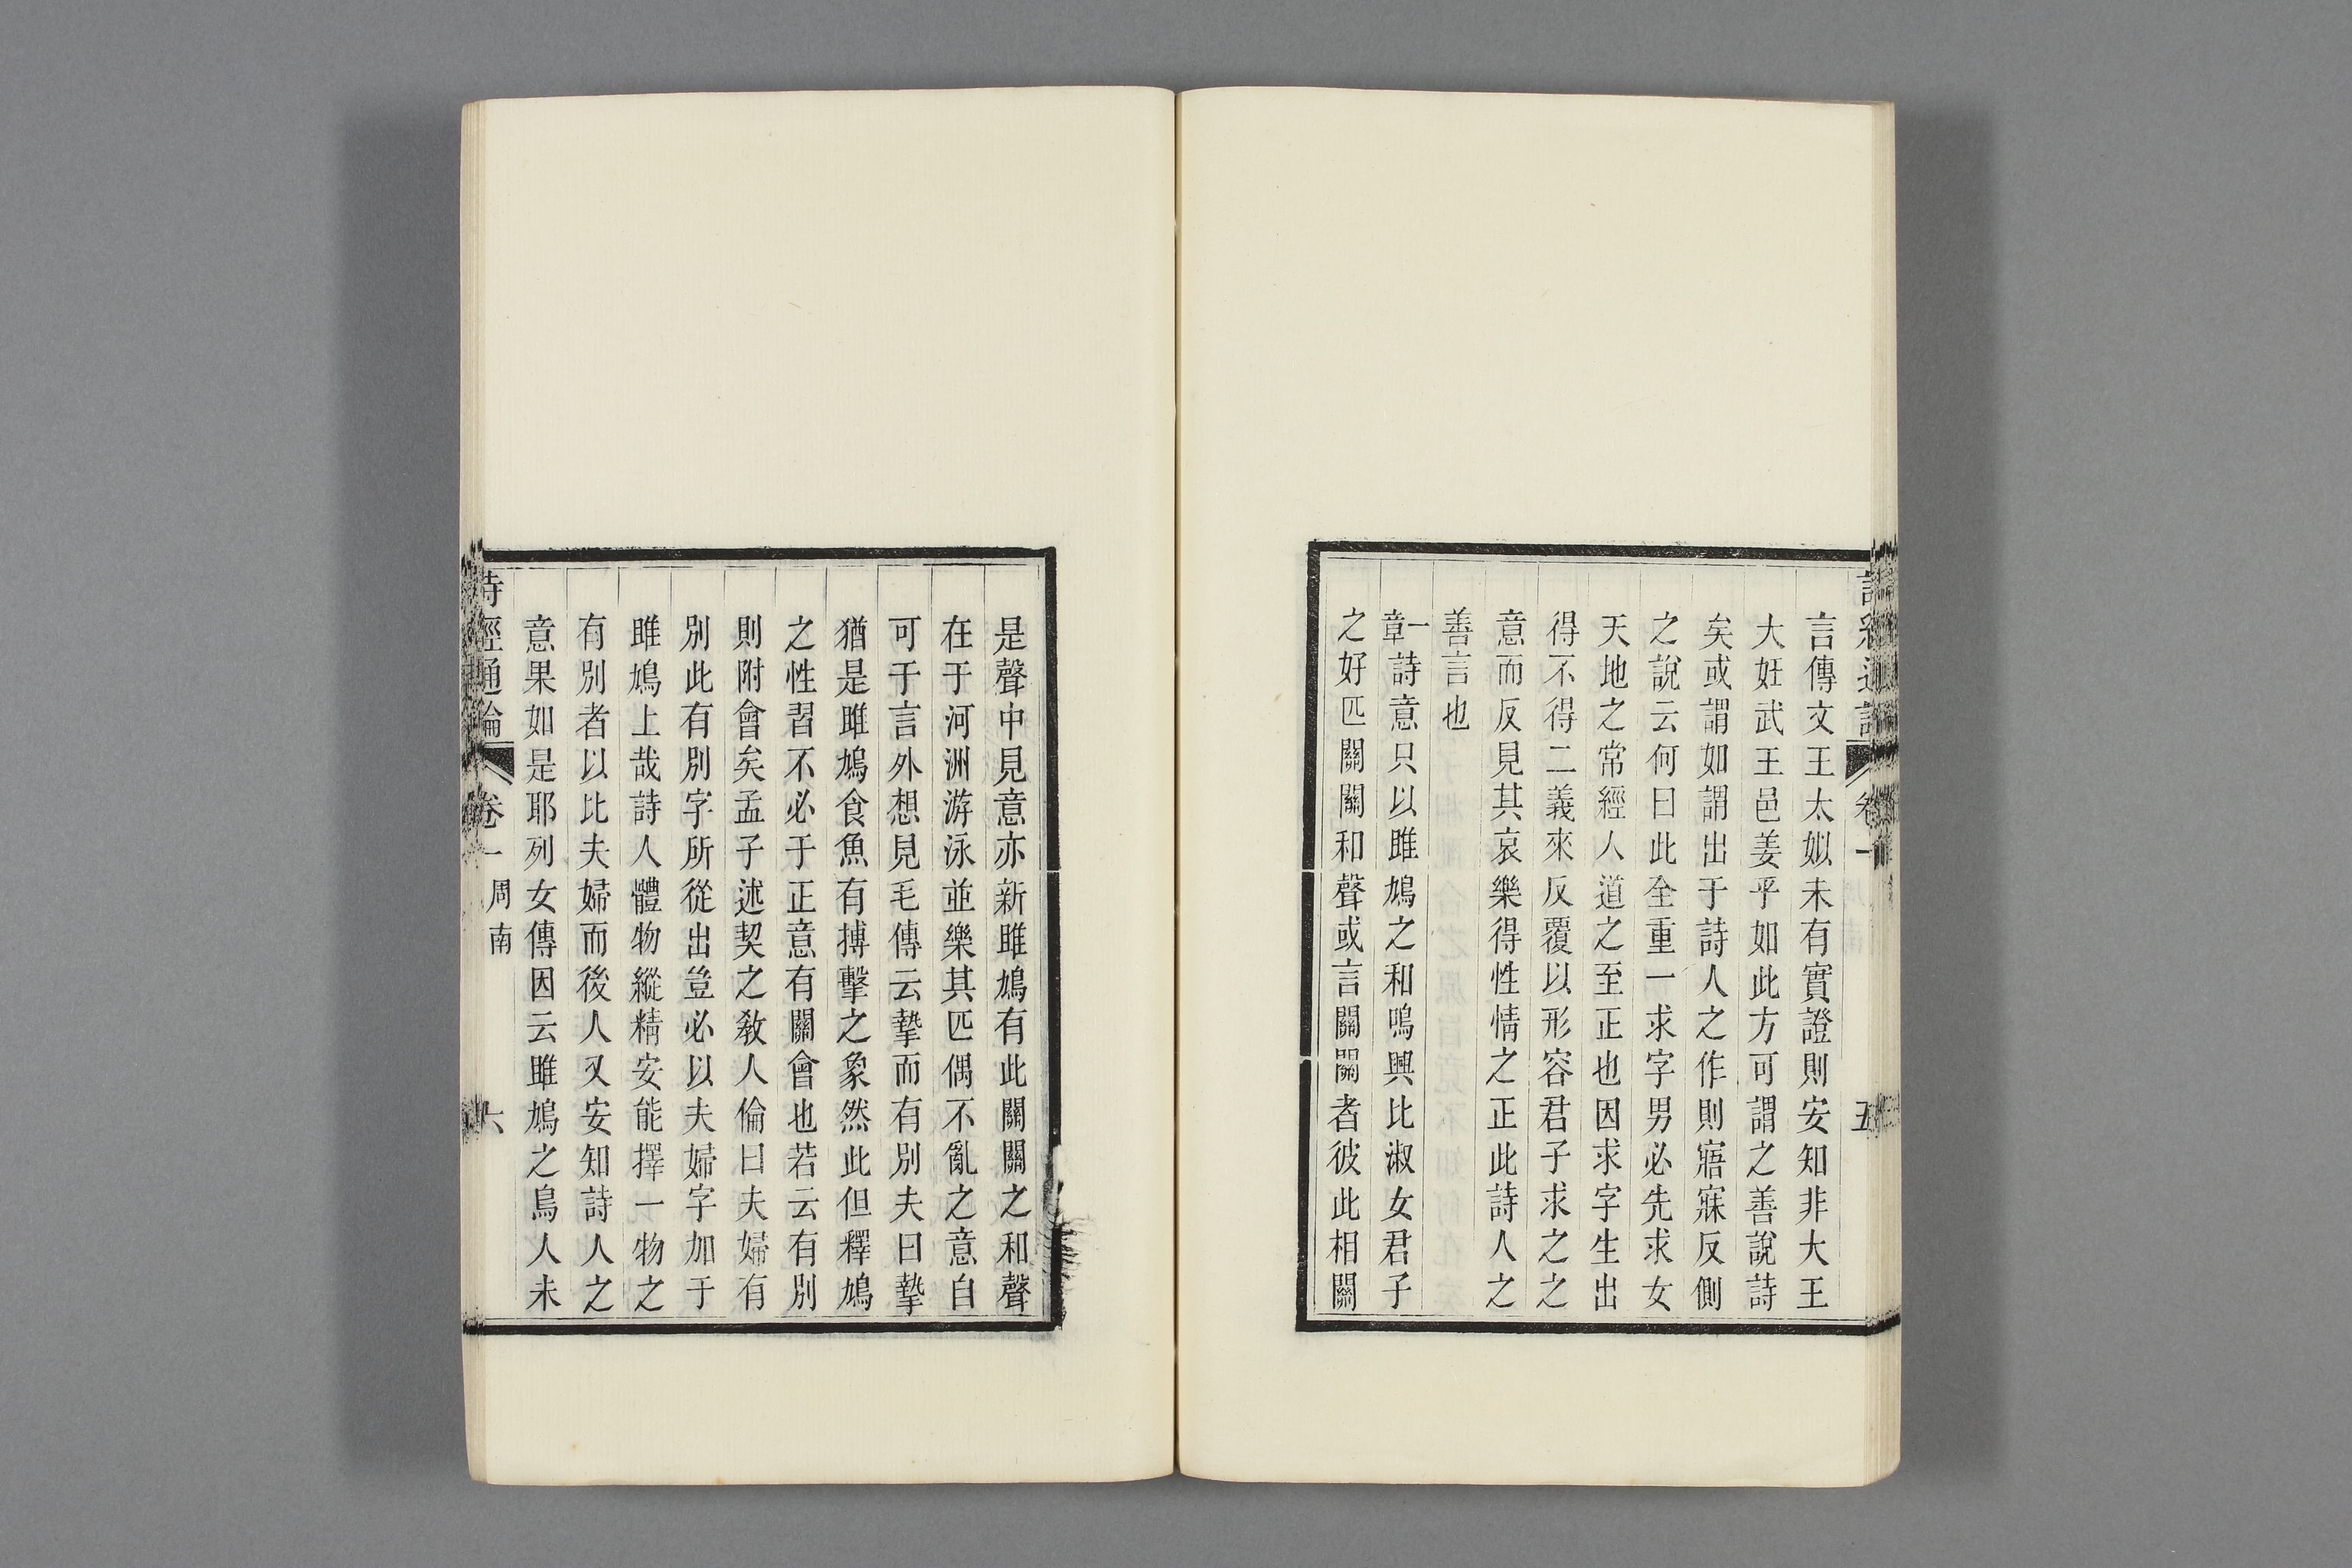 言傳文王太姒未有實證則安知非大王
大妊武王邑姜乎如此方可謂之善說詩
矣或謂如謂出于詩人之作則寤寐反側
之說云何曰此全重一求字男必先求女
天地之常經人道之至正也因求字生出
得不得二義來反覆以形容君子求之之
意而反見其哀樂得性情之正此詩人之
善言也
一章詩意只以雎鳩之和鳴興比淑女君子
之好匹關關和聲或言關關者彼此相關
是聲中見意亦新雎鳩有此關關之和聲
在于河洲游泳並樂其匹偶不亂之意自
可于言外想見毛傳云摯而有別夫曰摯
猶是雎鳩食魚有搏擊之象然此但釋鳩
之性習不必于正意有關會也若云有別
則附會矣孟子述契之敎人倫曰夫婦有
別此有別字所從出豈必以夫婦字加于
雎鳩上哉詩人體物縱精安能擇一物之
有別者以比夫婦而後人又安知詩人之
意果如是耶列女傳因云雎鳩之鳥人未
詩經通論 卷一 周南 六